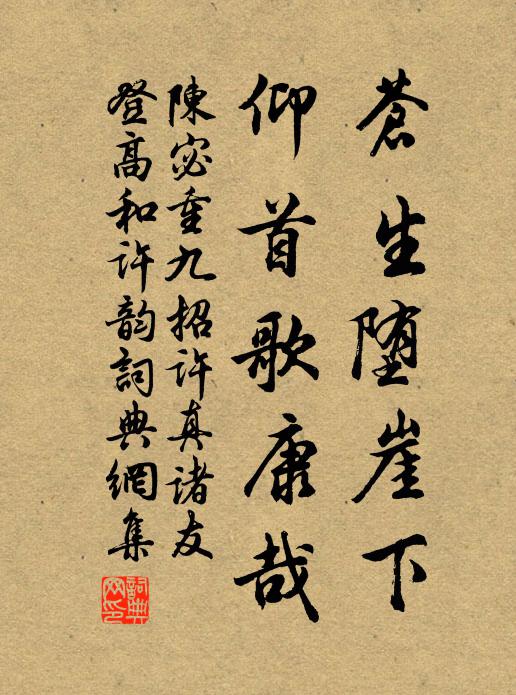 蒼生堕崖下
仰首歌康哉
陳宓重九招許真諸友
登高和許韵詞典網集
詞典网印